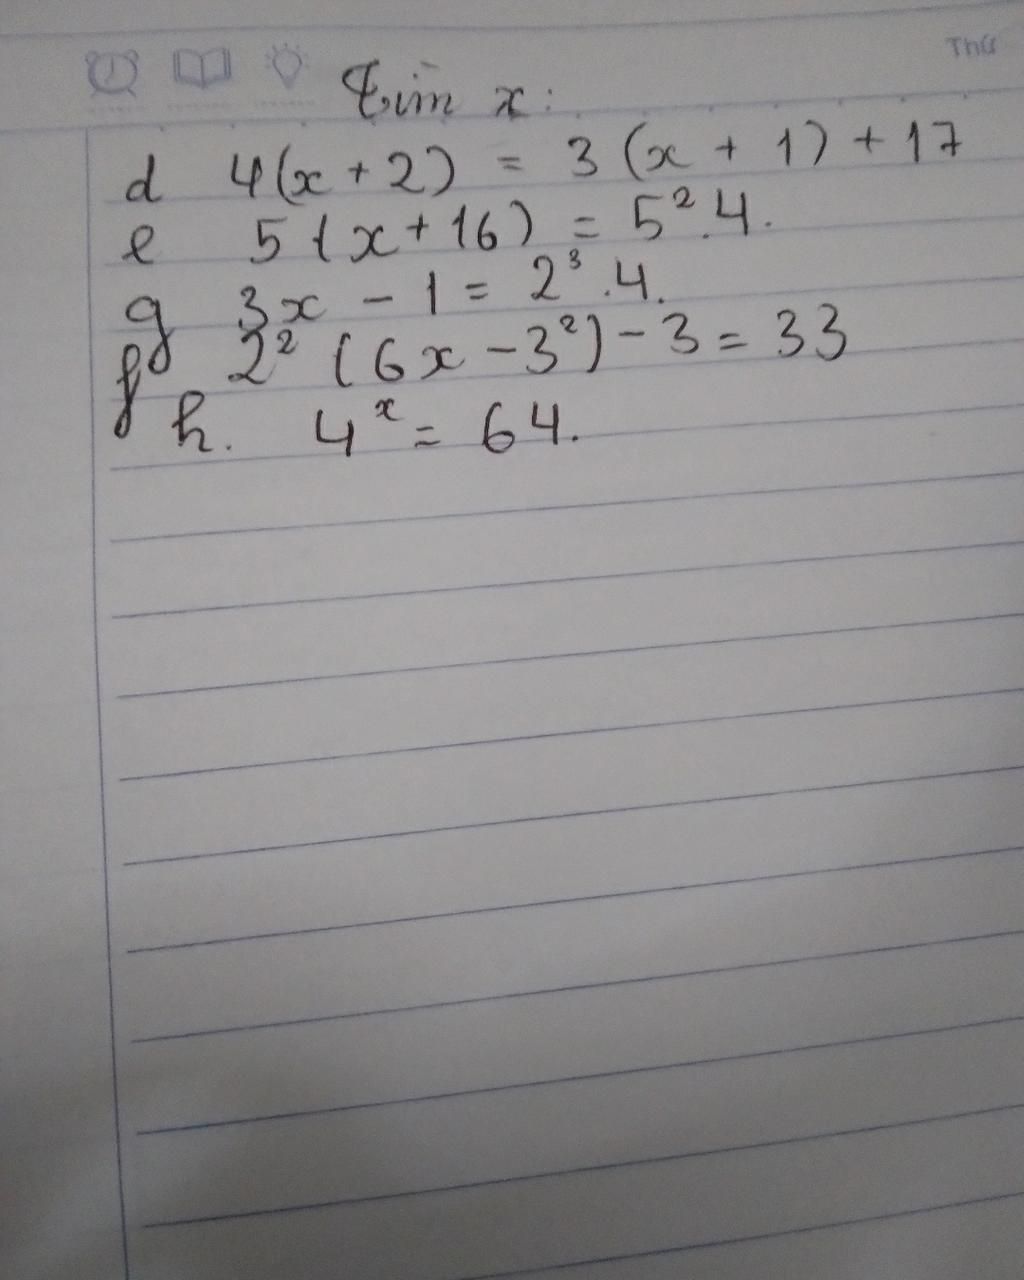 Thứ
Tìm x:
d 4(x + 2) = 3 (x + 1) + 17
e 5 (x + 16) = 5² . 4.
g 3x - 1 = 2³ . 4.
f 2² (6x - 3²) - 3 = 33
h. 4ˣ = 64.